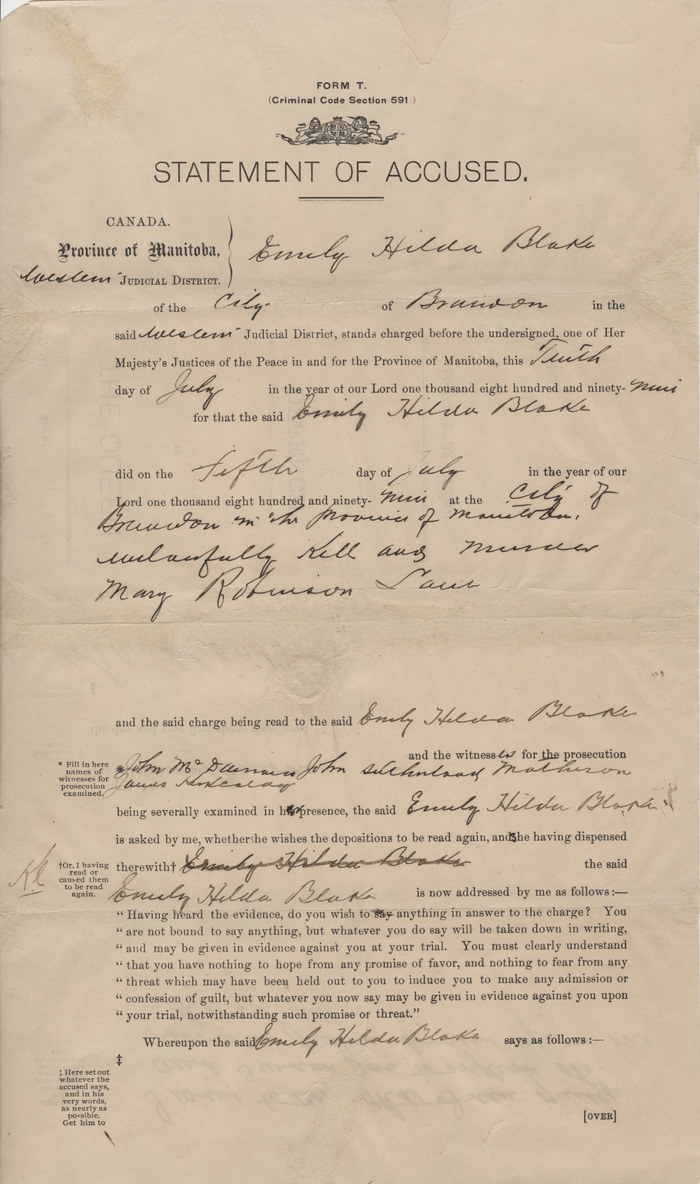 FORM T.
(Criminal Code Section 591.)
STATEMENT OF ACCUSED.
CANADA.
Province of Manitoba,
Western JUDICIAL DISTRICT.
Emily Hilda Blake
of the City of Brandon in the
said Western Judicial District, stands charged before the undersigned, one of Her
Majesty's Justices of the Peace in and for the Province of Manitoba, this Tenth
day of July in the year of our Lord one thousand eight hundred and ninety- nine
for that the said Emily Hilda Blake
did on the fifth day of July in the year of our
Lord one thousand eight hundred and ninety- nine at the City of
Brandon in the province of Manitoba,
unlawfully kill and murder
Mary Robinson Lane
and the said charge being read to the said Emily Hilda Blake
and the witnesses for the prosecution
* Fill in here names of witnesses for prosecution examined.
*John John Matheson
James
being severally examined in her presence, the said Emily Hilda Blake
is asked by me, whether she wishes the depositions to be read again, and She having dispensed
†Or, I having read or caused them to be read again.
therewith† Emily Hilda Blake the said
Emily Hilda Blake is now addressed by me as follows:—
" Having heard the evidence, do you wish to say anything in answer to the charge? You
" are not bound to say anything, but whatever you do say will be taken down in writing,
" and may be given in evidence against you at your trial. You must clearly understand
" that you have nothing to hope from any promise of favor, and nothing to fear from any
" threat which may have been held out to you to induce you to make any admission or
" confession of guilt, but whatever you now say may be given in evidence against you upon
" your trial, notwithstanding such promise or threat."
Whereupon the said Emily Hilda Blake says as follows:—
‡
‡ Here set out whatever the accused says, and in his very words, as nearly as possible. Get him to
[OVER]